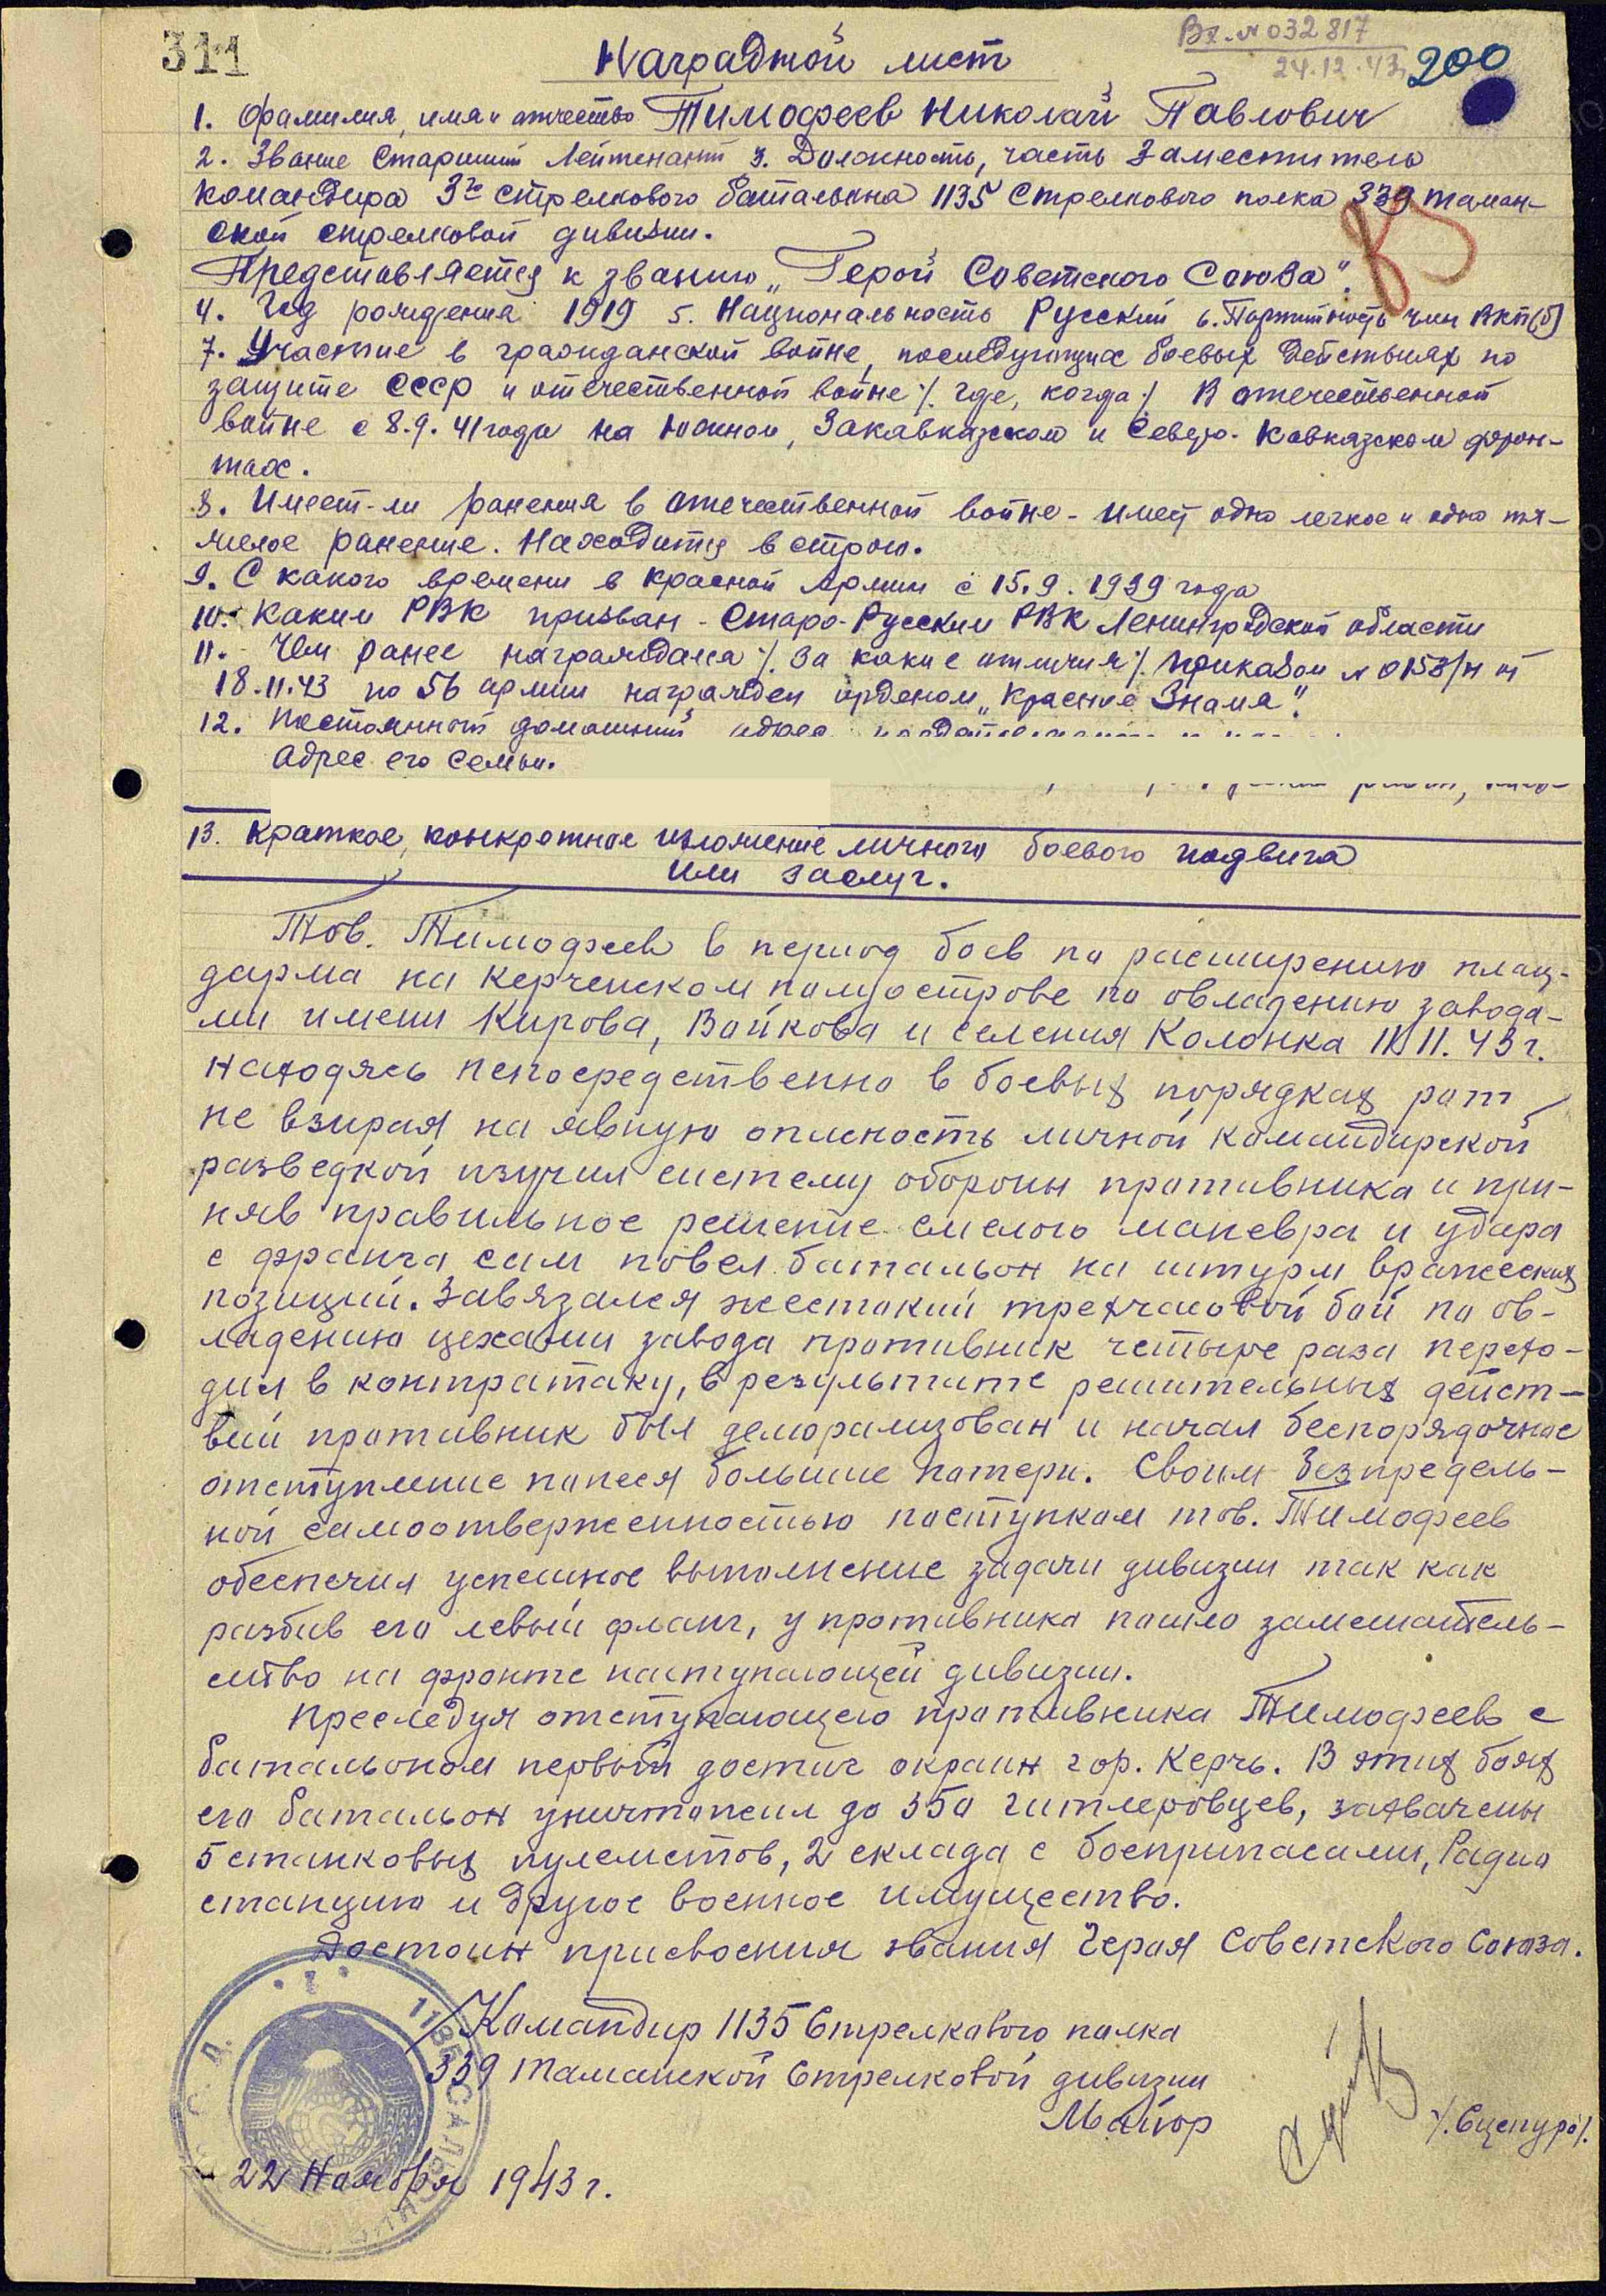 311
Вх. N 032817
24.12.43
200
Наградной лист
1. Фамилия, имя и отчество Тимофеев Николай Павлович
2. Звание Старший Лейтенант 3. Должность, часть Заместитель
командира 3го стрелкового батальона 1135 Стрелкового полка 339 таман-
ской стрелковой дивизии.
Представляется к званию „Герой Советского Союза".
4. Год рождения 1919 5. Национальность Русский 6. Партийность член ВКП(б)
7. Участие в гражданской войне, последующих боевых действиях по
защите СССР и отечественной войне /. где, когда ./ В отечественной
войне с 8.9.41 года на Южном, Закавказском и Северо-Кавказском фрон-
тах.
8. Имеет-ли ранения в отечественной войне - имеет одно легкое и одно тя-
желое ранение. Находится в строю.
9. С какого времени в Красной Армии с 15.9.1939 года
10. Каким РВК призван - Старо-Русским РВК Ленинградской области
11. Чем ранее награждался /. За какие отличия /. Приказом N 0158/н от
18.11.43 по 56 армии награжден орденом „Красное Знамя".
12. Постоянный домашний адрес
Адрес его семьи.
13. Краткое, конкретное изложение личного боевого подвига
или заслуг.
Тов. Тимофеев в период боев по расширению плац-
дарма на Керченском полуострове по овладению завода-
ми имени Кирова, Войкова и селения Колонка 11.11.43 г.
находясь непосредственно в боевых порядках рот
не взирая на явную опасность личной командирской
разведкой изучил систему обороны противника и при-
няв правильное решение смелого маневра и удара
с фланга сам повел батальон на штурм вражеских
позиций. Завязался жестокий трехчасовой бой по ов-
ладению цехами завода противник четыре раза перехо-
дил в контратаку, в результате решительных дейст-
вий противник был деморализован и начал беспорядочное
отступление понеся большие потери. Своим безпредель-
ной самоотверженностью поступком тов. Тимофеев
обеспечил успешное выполнение задачи дивизии так как
разбив его левый фланг, у противника пошло замешатель-
ство на фронте наступающей дивизии.
Преследуя отступающего противника Тимофеев с
батальоном первый достиг окраин гор. Керчь. В этих боях
его батальон уничтожил до 350 гитлеровцев, захвачены
5 станковых пулеметов, 2 склада с боеприпасами, Радио
станцию и другое военное имущество.
Достоин присвоения звания Героя Советского Союза.
Командир 1135 Стрелкового полка
339 Таманской Стрелковой дивизии
Майор
/. Сцепуро /.
22 Ноября 1943 г.